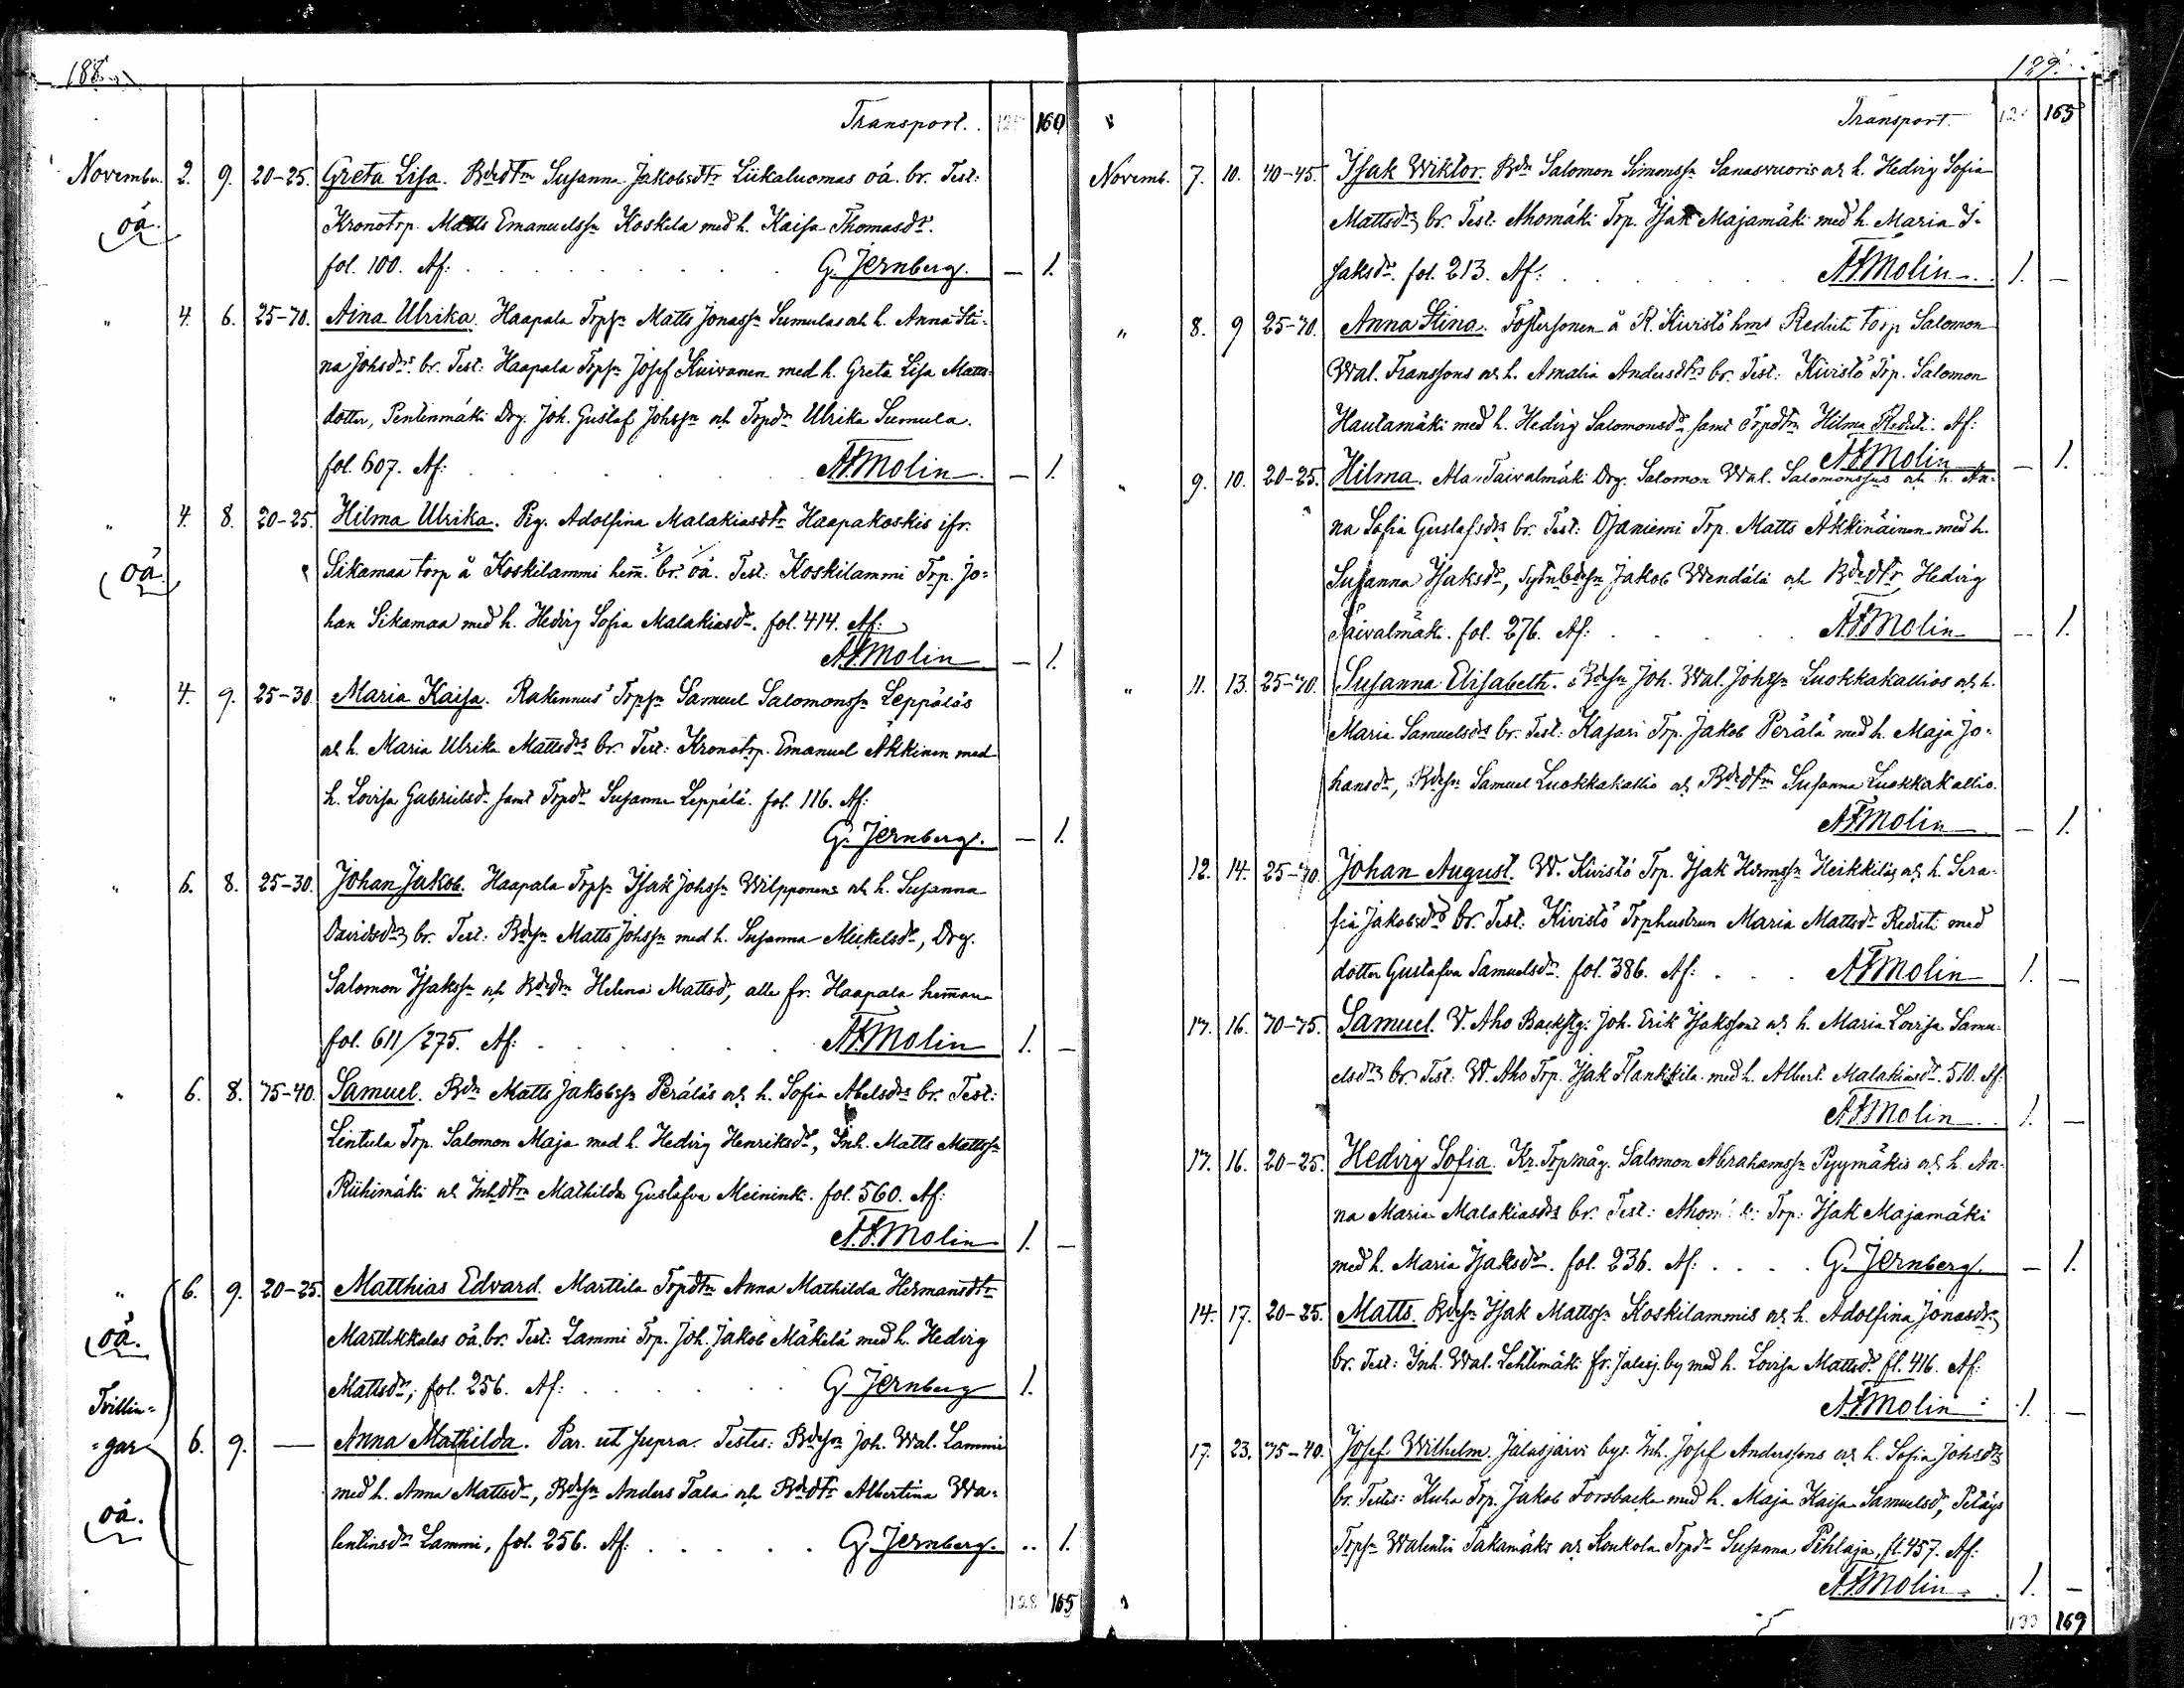 188.
Transport. 125 160
November. 2. 9. 20-25. Greta Lisa. Bdedtrn Susanna Jakobsdtr Liikaluomas oä. br. Test:
oä. Kronotrp. Matts Emanuelssn Koskela med h. Kaisa Thomasdr.
fol. 100. Af: G. Jernberg. — 1.
" 4. 6. 25-70. Aina Ulrika. Haapala Trpsn Matts Jonassn Sumulas och h. Anna Sti-
na Johsdrs br. Test: Haapala Trpsn Josef Kuivanen med h. Greta Lisa Matts-
dotter, Pentinmäki Drg. Joh. Gustaf Johssn och Trpdr Ulrika Sumula.
fol. 607. Af: A.F. Molin — 1.
" 4. 8. 20-25. Hilma Ulrika. Pig. Adolfina Malakiasdtr Haapakoskis ifr.
oä. Sikamaa torp å Koskilammi hem. br. oä. Test: Koskilammi Trp. Jo-
han Sikamaa med h. Hedvig Sofia Malakiasdr. fol. 414. Af:
A.F. Molin — 1.
" 4. 9. 25-30. Maria Kaisa. Rakennus Trpsn Samuel Salomonssn Leppäläs
och h. Maria Ulrika Mattsdrs br. Test: Kronotrp. Emanuel Äkkinen med
h. Lovisa Gabrielsdr samt Trpdr Susanna Leppälä. fol. 116. Af:
G. Jernberg. — 1.
" 6. 8. 25-30. Johan Jakob. Haapala Trpsn Isak Johssn Wilpponens och h. Susanna
Davidsdrs br. Test: Bdesn Matts Johssn med h. Susanna Mickelsdr, Drg.
Salomon Isakssn och Bdedtrn Helena Mattsdr, alla fr. Haapala hemman
fol. 611/275. Af: A.F. Molin 1. —
" 6. 8. 75-40. Samuel. Bdn Matts Jakobssn Peräläs och h. Sofia Abelsdrs br. Test:
Lintula Trp. Salomon Maja med h. Hedvig Henriksdr, Inh. Matts Mattssn
Riihimäki och Inhdtrn Mathilda Gustafva Meinink. fol. 560. Af:
A.F. Molin 1. —
" 6. 9. 20-25. Matthias Edvard. Marttila Trpdtrn Anna Mathilda Hermansdtr
oä. Marttikkalas oä. br. Test: Lammi Trp. Joh. Jakob Mäkelä med h. Hedvig
Mattsdr, fol. 256. Af: G. Jernberg 1.
Tvillin-
-gar 6. 9. — Anna Mathilda. Par. ut supra. Testes: Bdesn Joh. Wal. Lammi
med h. Anna Mattsdr, Bdesn Anders Tala och Bdedtr Albertina Wa-
oä. lentinsdr Lammi, fol. 256. Af: G. Jernberg. .. 1.
128 165
189.
Transport. 165
Novemb. 7. 10. 40-45. Isak Wiktor. Bdn Salomon Simonssn Sanasvuoris och h. Hedvig Sofia
Mattsdrs br. Test: Ahomäki Trp. Isak Majamäki med h. Maria I-
saksdr. fol. 213. Af: A.F. Molin 1. —
" 8. 9 25-70. Anna Stina. Fostersonen å R. Kivistö hms Reduti torp Salomon
Wal. Franssons och h. Amalia Andersdtrs br. Test: Kivistö Trp. Salomon
Hautamäki med h. Hedvig Salomonsdr, samt Trpdtrn Hilma Reduti. Af:
A.F. Molin — 1.
" 9. 10. 20-25. Hilma. Ala-Taivalmäki Drg. Salomon Wal. Salomonssns och h. An-
na Sofia Gustafsdrs br. Test: Ojaniemi Trp. Matts Äkkinäinen med h.
Susanna Isaksdr, Jakob Wendälä och Bdedtr Hedvig
Taivalmäki. fol. 276. Af: A.F. Molin — 1.
" 11. 13. 25-70. Susanna Elisabeth. Bdesn Joh. Wal. Johssn Luokkakallios och h.
Maria Samuelsdrs br. Test: Kasari Trp. Jakob Perälä med h. Maja Jo-
hansdr, Bdesn Samuel Luokkakallio och Bdedtrn Susanna Luokkakallio.
A.F. Molin — 1.
12. 14. 25-70. Johan August. W. Kivistö Trp. Isak Hermssn Heikkiläs och h. Sera-
fia Jakobsdrs br. Test: Kivistö Trphustrun Maria Mattsdr Reduti med
dotter Gustafva Samuelsdr. fol. 386. Af: A.F. Molin 1. —
17. 16. 70-75. Samuel. W. Aho Backstg. Joh. Erik Isakssons och h. Maria Lovisa Samu-
elsdrs br. Test: W. Aho Trp. Isak Hankkila med h. Albert. Malakiasdr. 510. Af:
A.F. Molin 1. —
17. 16. 20-25. Hedvig Sofia. Kr. Trpmåg. Salomon Abrahamssn Pyymäkis och h. An-
na Maria Malakiasdrs br. Test: Ahomäki Trp. Isak Majamäki
med h. Maria Isaksdr. fol. 236. Af: G. Jernberg. — 1.
14. 17. 20-25. Matts. Bdesn Isak Mattssn Koskilammis och h. Adolfina Jonasdrs
br. Test: Inh. Wal. Lehtimäki fr. Jalasj. by med h. Lovisa Mattsdr fl. 416. Af:
A.F. Molin 1. —
17. 23. 75-40. Josef Wilhelm. Jalasjärvi bys. Inh. Josef Anderssons och h. Sofia Johsdtrs
br. Testes: Kuha Trp. Jakob Forsbacka med h. Maja Kaisa Samuelsdr, Petäys
Trpsn Walentin Takamäki och Koukola Trpdr Susanna Pihlaja, fl. 457. Af:
A.F. Molin 1. —
133 169